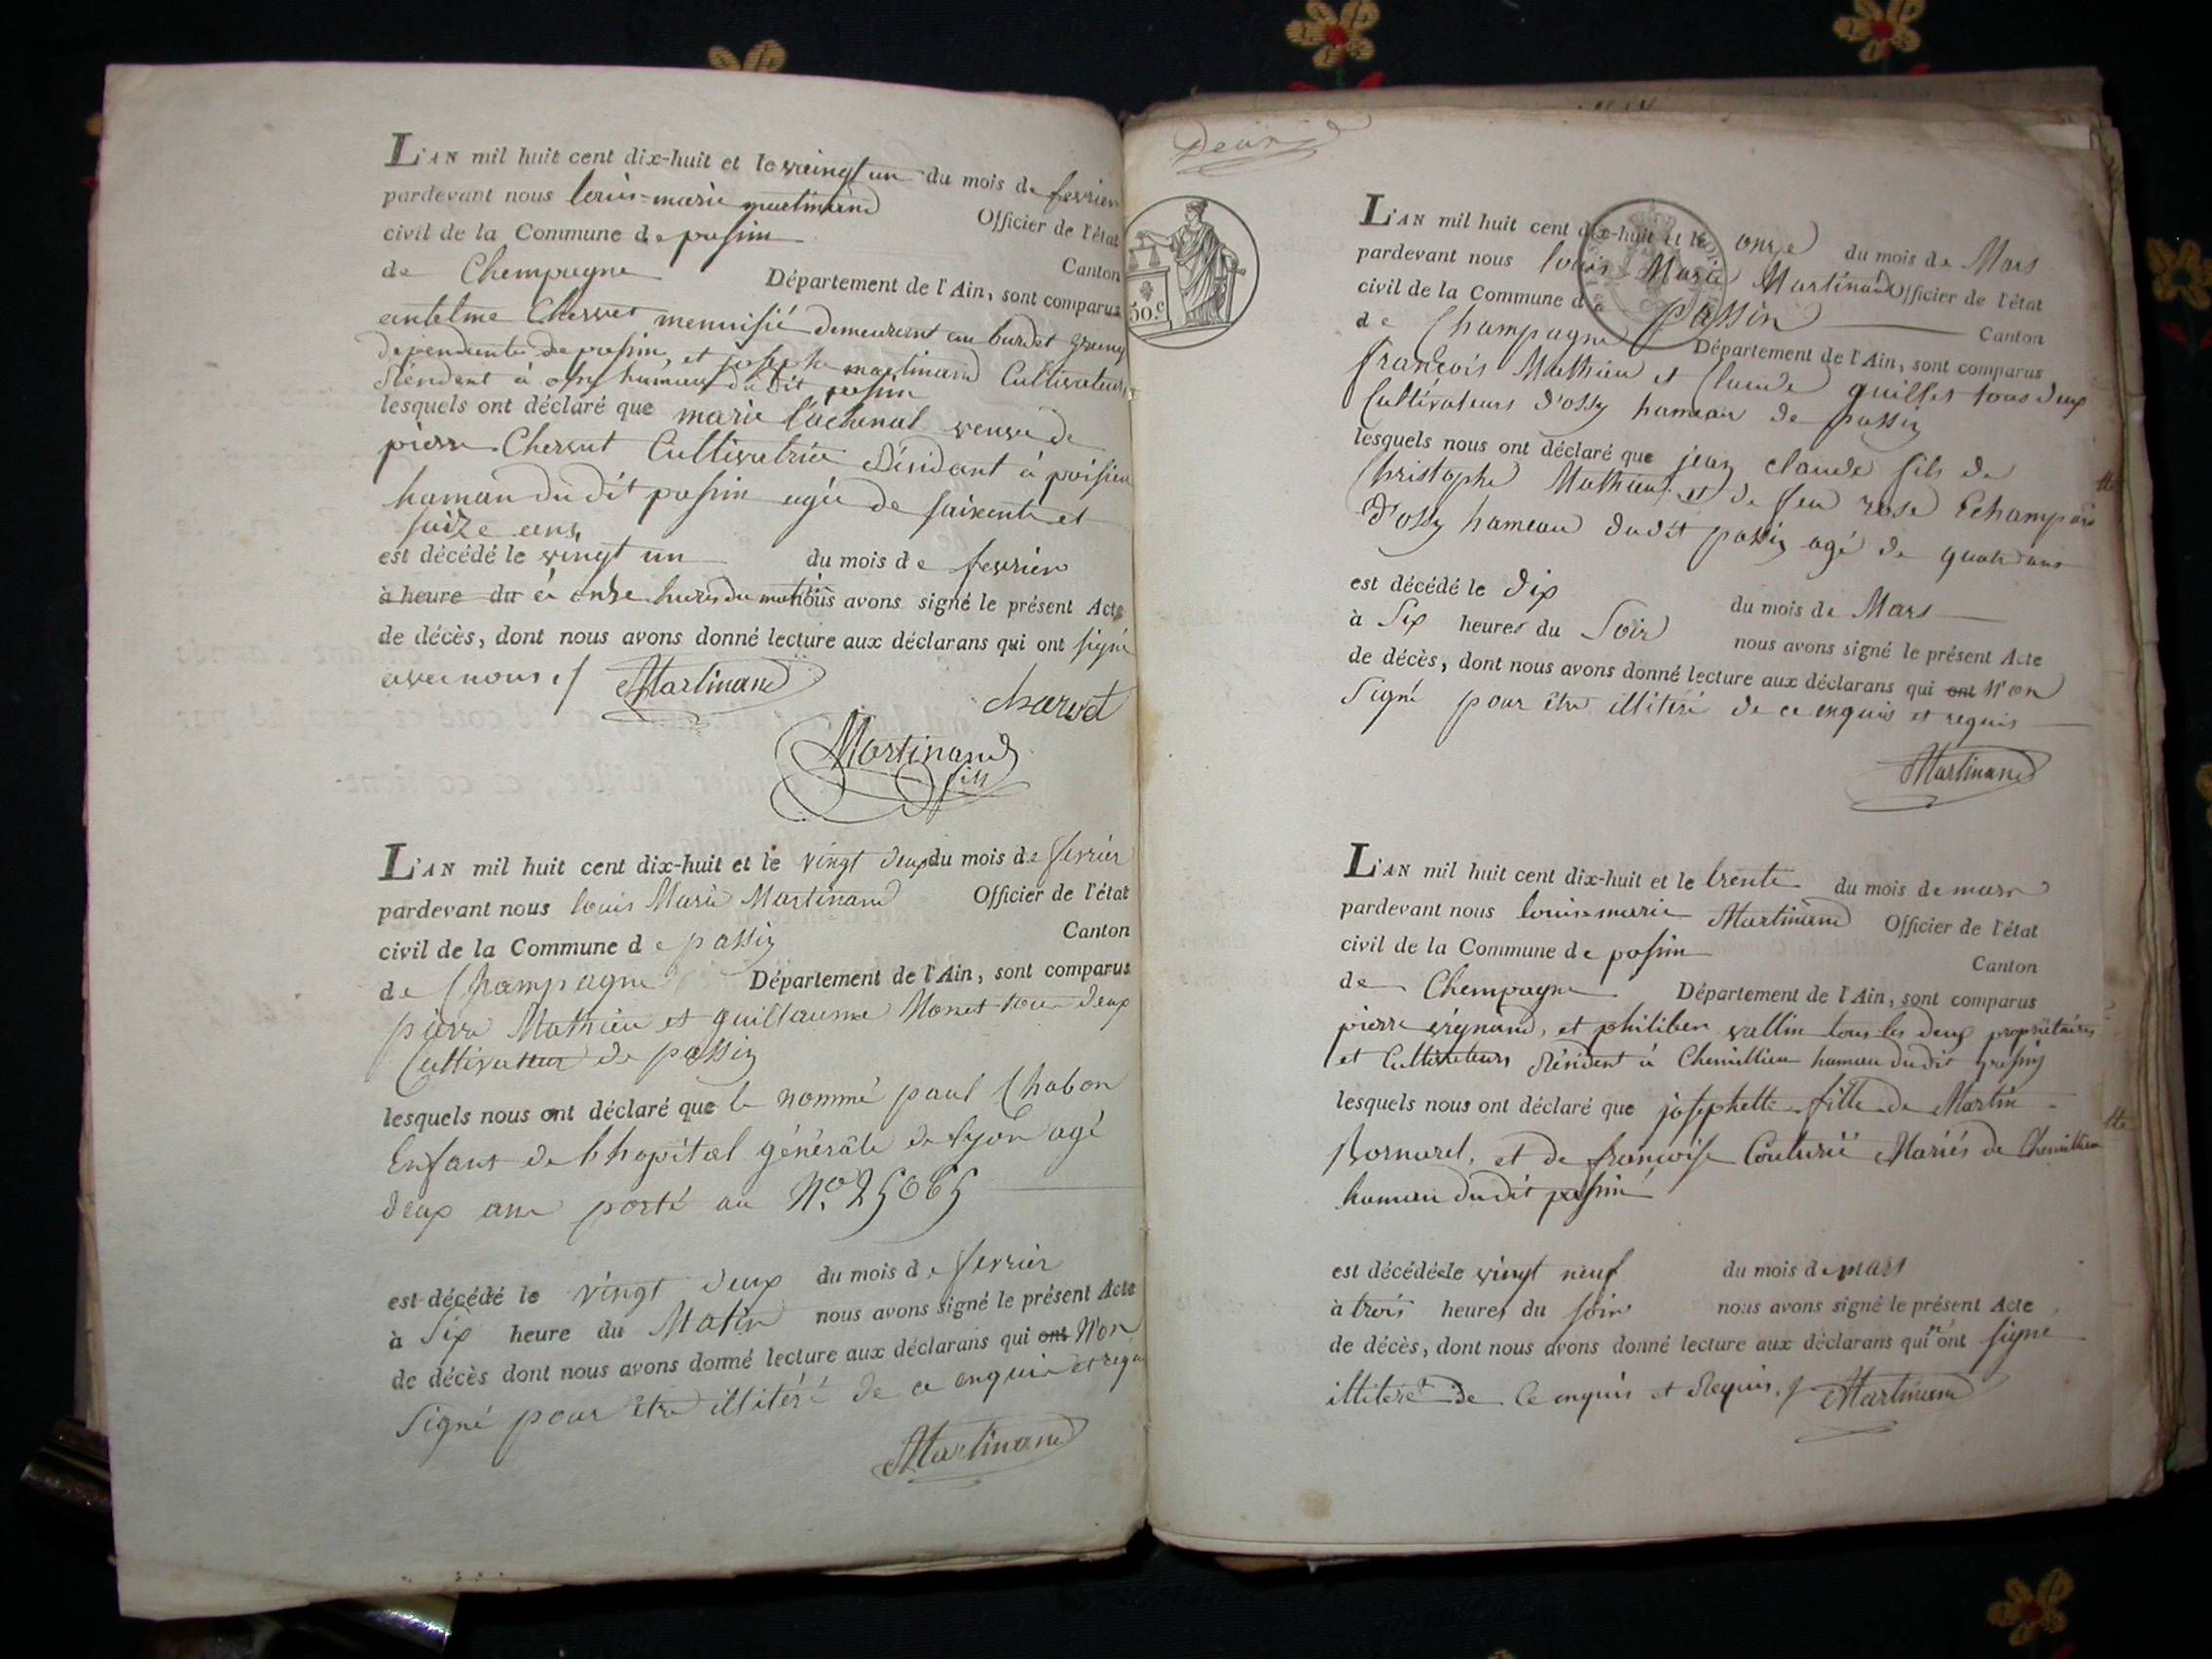 L'AN mil huit cent dix-huit et le vaingt un du mois de fevrier
pardevant nous louis-marie martinand Officier de l'état
civil de la Commune de pasin Canton
de Chempagne Département de l'Ain, sont comparus
entelme Chervet menuisié demeurant au
dependente de pasin, et joseph martinand Cultivateur
Résident à ossy hameau du dit pasin
lesquels ont déclaré que marie lachenal veuve de
pierre Chervet Cultivatrice Résidant à poisieu
hamau du dit pasin agée de soixente et
saize ans
est décédé le vingt un du mois de fevrier
à heure du à onze hures du matin nous avons signé le présent Acte
de décès, dont nous avons donné lecture aux déclarans qui ont signé
avec nous Martinand charvet
Martinand fils
L'AN mil huit cent dix-huit et le vingt deux du mois de fevrier
pardevant nous louis Marie Martinand Officier de l'état
civil de la Commune de passin Canton
de Champagne Département de l'Ain, sont comparus
pierre Mathieu et guillaume Monet tou deux
Cultivateur de passin
lesquels nous ont déclaré que le nommé paul Chabon
Enfant de l'hopital générale de lyon agé
deux ans porté au N.º 25065
est décédé le vingt deux du mois de fevrier
à Six heure du Matin nous avons signé le présent Acte
de décès dont nous avons donné lecture aux déclarans qui ont N'on
Signé pour être illitéré de ce enquis et requi
Martinand
Deux
50.c
L'AN mil huit cent dix-huit et le onze du mois de Mars
pardevant nous louis Marie Martinand Officier de l'état
civil de la Commune de passin Canton
de Champagne Département de l'Ain, sont comparus
francois Mathieu et Claude guillet tous deux
Cultivateurs d'ossy hameau de passin
lesquels nous ont déclaré que jean claude fils de
Christophe Mathieu et de feu rose Echampard
d'ossy hameau dudit passin agé de quatre ans
est décédé le dix du mois de Mars
à Six heures du Soir nous avons signé le présent Acte
de décès, dont nous avons donné lecture aux déclarans qui ont N'on
Signé pour être illitéré de ce enquis et requis
Martinand
L'AN mil huit cent dix-huit et le trente du mois de mars
pardevant nous louis marie Martinand Officier de l'état
civil de la Commune de pasin Canton
de Chempagne Département de l'Ain, sont comparus
pierre et philiber vallin tous les deux propriétaires
et Cultivateurs Résident à Chemillieu hamau du dit pasin
lesquels nous ont déclaré que josephette fille de Martin
Bornarel, et de francoise Couturié Mariés de Chemillieu
hamau du dit pasin
est décédée le vingt neuf du mois de mars
à trois heures du soir nous avons signé le présent Acte
de décès, dont nous avons donné lecture aux déclarans qui n'ont signe
illiteré de Ce enquis et Requis. Martinand